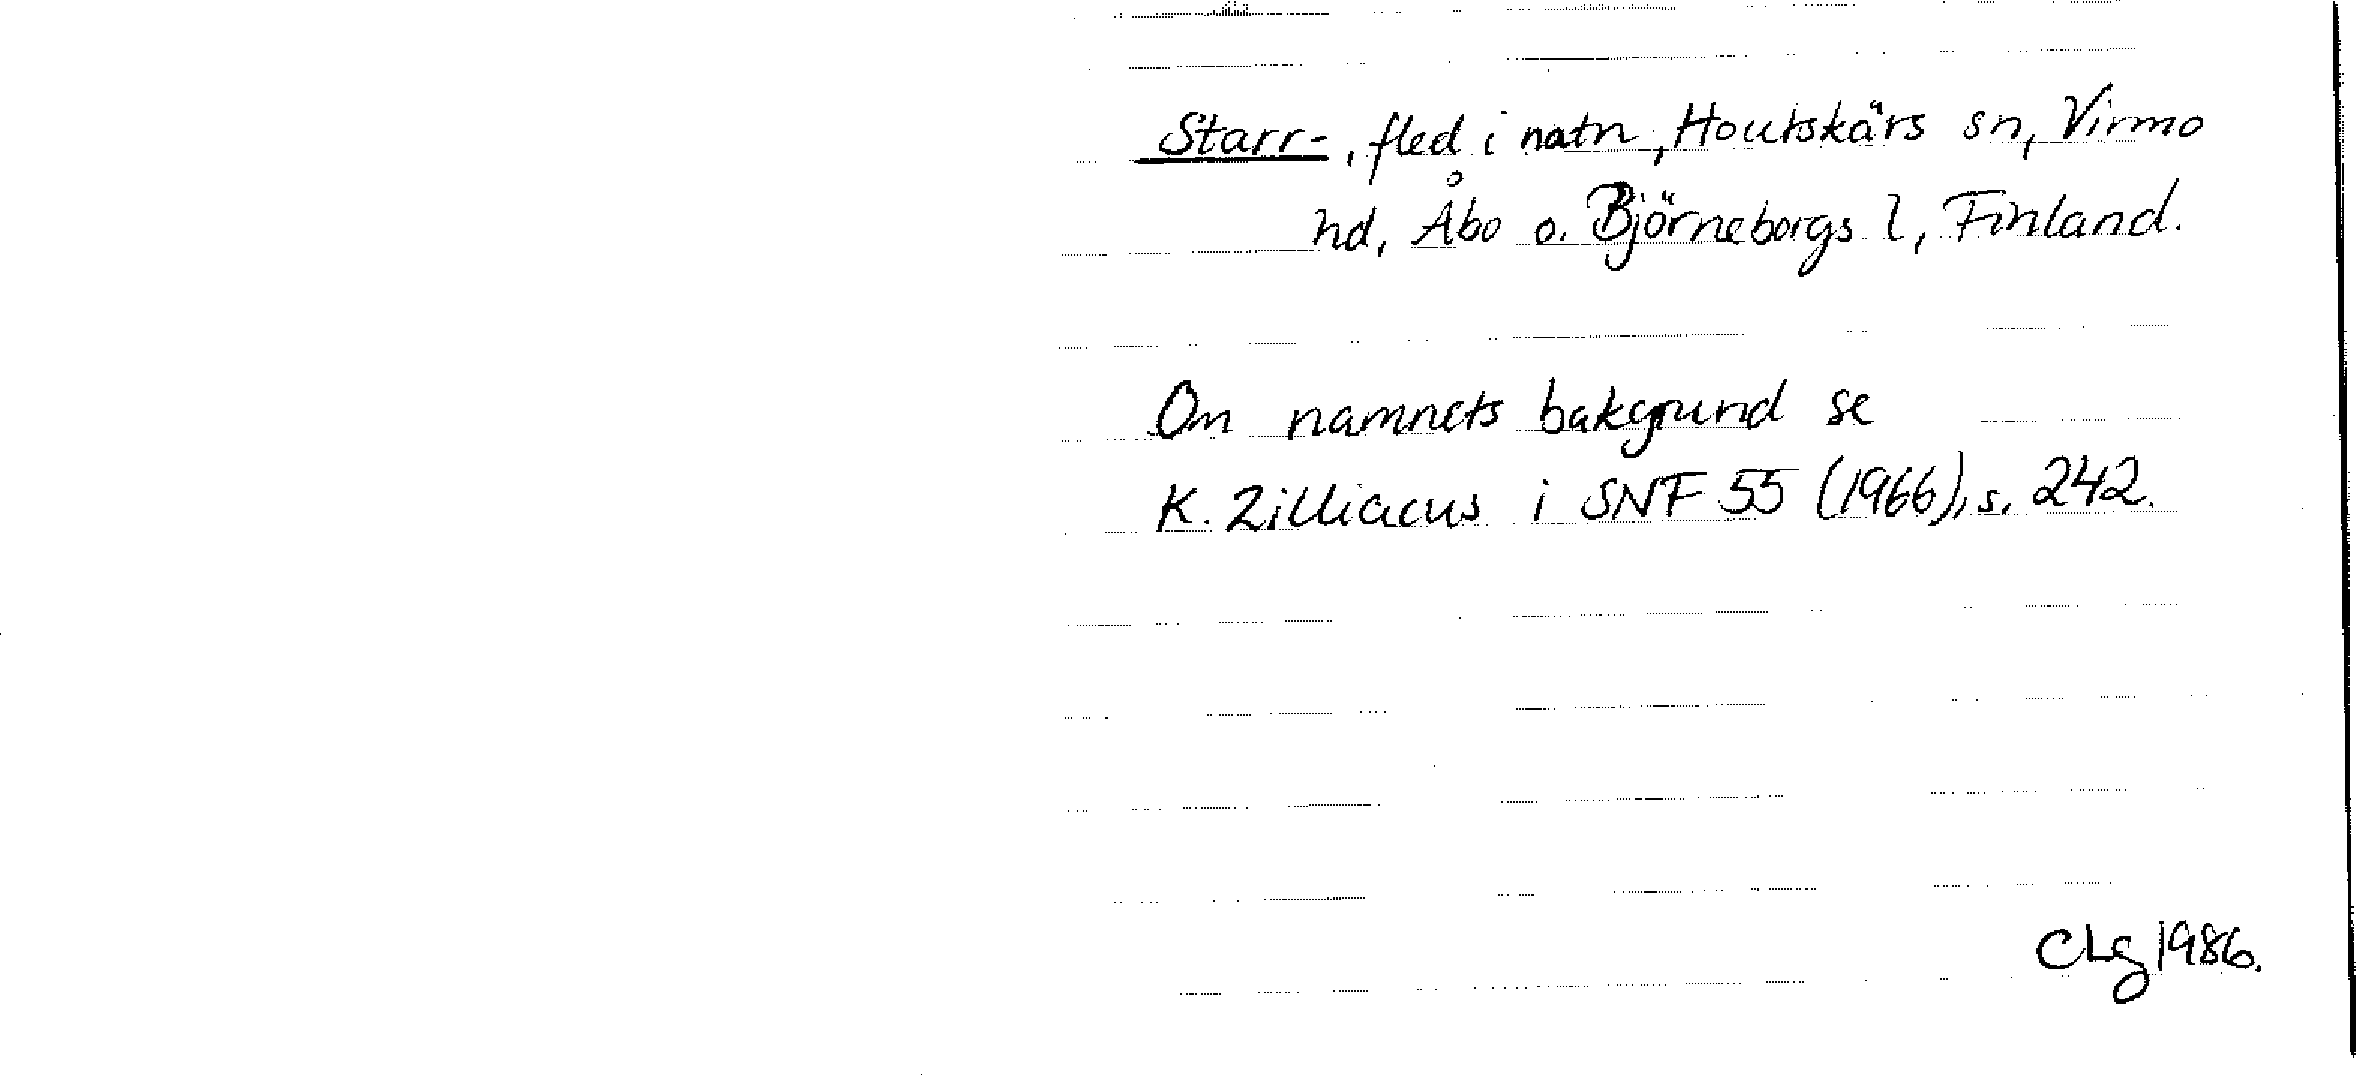 Starr-, fled i natn, Houtskärs sn, Virmo
hd, Åbo o. Björneborgs l, Finland.
Om namnets bakgrund se
K. Zilliacus i SNF 55 (1966), s. 242.
CLg 1986.